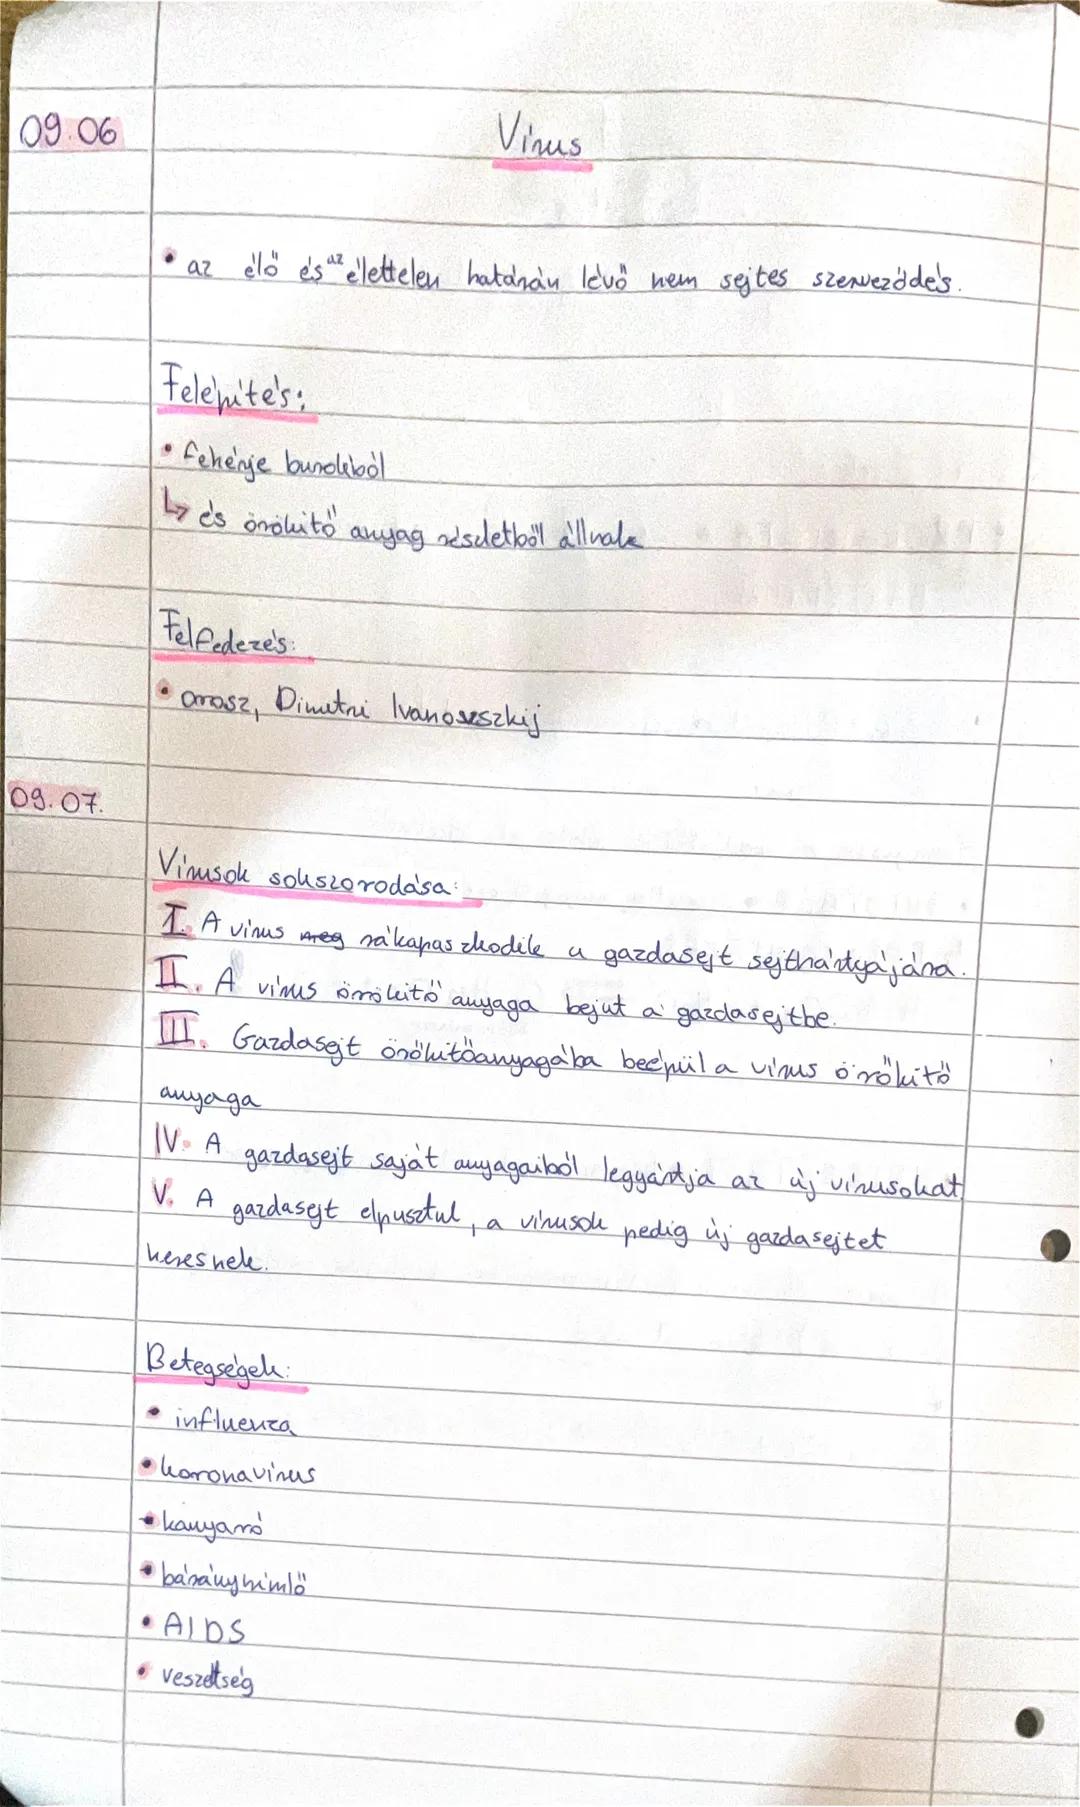 09.06
Vírus
• az élő és az élettelen határán lévő nem sejtes szerveződés.
Felépítés:
• fehérje burokból
↳ és örökítő anyag részletből állnak
Felfedezés:
• orosz, Dimitri Ivanovszkij
09.07.
Vírusok sokszorodása:
I. A vírus meg rákapaszkodik a gazdasejt sejthártyájára.
II. A vírus örökítő anyaga bejut a gazdasejtbe.
III. Gazdasejt örökítőanyagába beépül a vírus örökítő
anyaga
IV. A gazdasejt saját anyagaiból legyártja az új vírusokat
V. A gazdasejt elpusztul, a vírusok pedig új gazdasejtet
keresnek.
Betegségek:
• influenza
• koronavírus
• kanyaró
• bárányhimlő
• AIDS
• veszettség